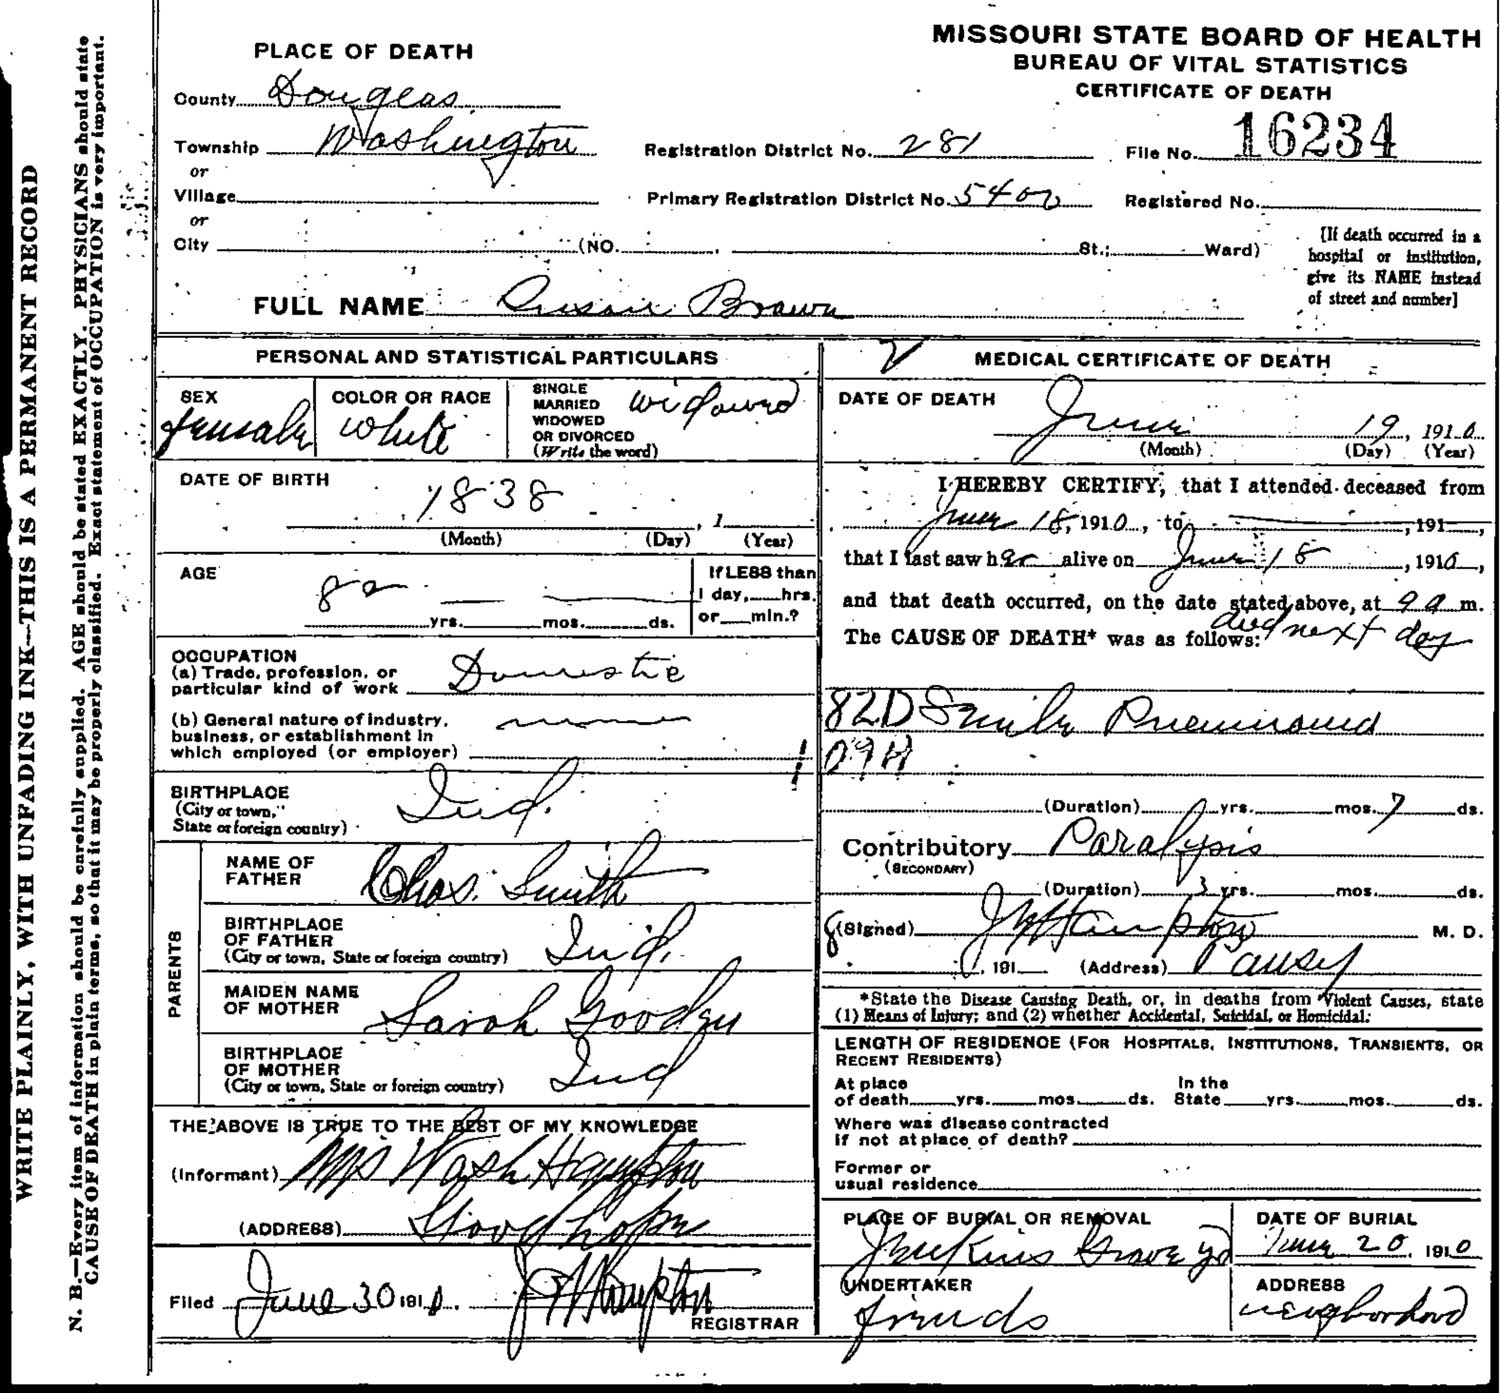 MISSOURI STATE BOARD OF HEALTH
BUREAU OF VITAL STATISTICS
CERTIFICATE OF DEATH
PLACE OF DEATH
County Douglas
Township Washington
or
Village
or
City (NO. St.; Ward)
Registration District No. 281
File No. 16234
Primary Registration District No. 5400
Registered No.
[If death occurred in a
hospital or institution,
give its NAME instead
of street and number]
FULL NAME Susan Brown
PERSONAL AND STATISTICAL PARTICULARS
SEX
female
COLOR OR RACE
white
SINGLE
MARRIED
WIDOWED
OR DIVORCED
(Write the word)
widowed
DATE OF BIRTH
1838, 1
(Month) (Day) (Year)
AGE
yrs. mos. ds.
If LESS than
1 day, hrs.
or min.?
OCCUPATION
(a) Trade, profession, or
particular kind of work Domestic
(b) General nature of industry,
business, or establishment in
which employed (or employer)
BIRTHPLACE
(City or town,
State or foreign country) Ind.
PARENTS
NAME OF
FATHER Chas. Smith
BIRTHPLACE
OF FATHER
(City or town, State or foreign country) Ind.
MAIDEN NAME
OF MOTHER Sarah
BIRTHPLACE
OF MOTHER
(City or town, State or foreign country) Ind
THE ABOVE IS TRUE TO THE BEST OF MY KNOWLEDGE
(Informant) Mrs Wash Hampton
(ADDRESS) Goodhope
Filed June 30 191 Hampton
REGISTRAR
MEDICAL CERTIFICATE OF DEATH
DATE OF DEATH
June 19, 1910
(Month) (Day) (Year)
I HEREBY CERTIFY, that I attended deceased from
June 18, 1910, to , 191 ,
that I last saw her alive on June 18, 1910,
and that death occurred, on the date stated above, at 9 a m.
The CAUSE OF DEATH* was as follows: died next day
82D Senile
09H
(Duration) yrs. mos. 7 ds.
Contributory Paralysis
(SECONDARY)
(Duration) 3 yrs. mos. ds.
(Signed) Hampton M. D.
, 191 (Address) Pansy
*State the Disease Causing Death, or, in deaths from Violent Causes, state
(1) Means of Injury; and (2) whether Accidental, Suicidal, or Homicidal.
LENGTH OF RESIDENCE (FOR HOSPITALS, INSTITUTIONS, TRANSIENTS, OR
RECENT RESIDENTS)
At place
of death yrs. mos. ds.
In the
State yrs. mos. ds.
Where was disease contracted
if not at place of death?
Former or
usual residence
PLACE OF BURIAL OR REMOVAL
Jenkins Grave yd
DATE OF BURIAL
June 20, 1910
UNDERTAKER
friends
ADDRESS
neighborhood
WRITE PLAINLY, WITH UNFADING INK--THIS IS A PERMANENT RECORD
N. B.—Every item of information should be carefully supplied. AGE should be stated EXACTLY. PHYSICIANS should state
CAUSE OF DEATH in plain terms, so that it may be properly classified. Exact statement of OCCUPATION is very important.